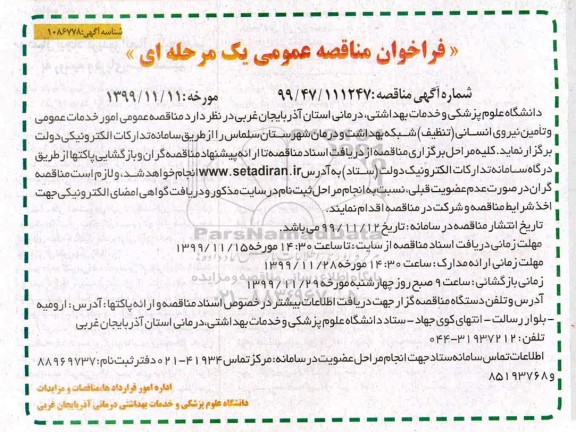 شناسه آگهی: ۱۰۸۶۷۷۸
« فراخوان مناقصه عمومی یک مرحله ای »
شماره آگهی مناقصه: ۹۹/۴۷/۱۱۱۲۴۷ مورخه: ۱۳۹۹/۱۱/۱۱
دانشگاه علوم پزشکی و خدمات بهداشتی، درمانی استان آذربایجان غربی در نظر دارد مناقصه عمومی امور خدمات عمومی
و تأمین نیروی انسانی (تنظیف) شبکه بهداشت و درمان شهرستان سلماس را از طریق سامانه تدارکات الکترونیکی دولت
برگزار نماید. کلیه مراحل برگزاری مناقصه از دریافت اسناد مناقصه تا ارائه پیشنهاد مناقصه گران و بازگشایی پاکتها از طریق
درگاه سامانه تدارکات الکترونیک دولت (ستاد) به آدرس www.setadiran.ir انجام خواهد شد، و لازم است مناقصه
گران در صورت عدم عضویت قبلی، نسبت به انجام مراحل ثبت نام در سایت مذکور و دریافت گواهی امضای الکترونیکی جهت
اخذ شرایط مناقصه و شرکت در مناقصه اقدام نمایند.
تاریخ انتشار مناقصه در سامانه: تاریخ ۹۹/۱۱/۱۲ می باشد.
مهلت زمانی دریافت اسناد مناقصه از سایت: تا ساعت ۱۴:۳۰ مورخه ۱۳۹۹/۱۱/۱۵
مهلت زمانی ارائه مدارک: ساعت ۱۴:۳۰ مورخه ۱۳۹۹/۱۱/۲۸
زمانی بازگشائی: ساعت ۹ صبح روز چهارشنبه مورخه ۱۳۹۹/۱۱/۲۹
آدرس و تلفن دستگاه مناقصه گزار جهت دریافت اطلاعات بیشتر در خصوص اسناد مناقصه و ارائه پاکتها: آدرس: ارومیه
- بلوار رسالت - انتهای کوی جهاد - ستاد دانشگاه علوم پزشکی و خدمات بهداشتی، درمانی استان آذربایجان غربی
تلفن: ۳۱۹۳۷۲۱۲-۰۴۴
اطلاعات تماس سامانه ستاد جهت انجام مراحل عضویت در سامانه: مرکز تماس ۴۱۹۳۴-۰۲۱ دفتر ثبت نام: ۸۸۹۶۹۷۳۷
و ۸۵۱۹۳۷۶۸
اداره امور قرارداد ها، مناقصات و مزایدات
دانشگاه علوم پزشکی و خدمات بهداشتی درمانی آذربایجان غربی
ParsNamadData